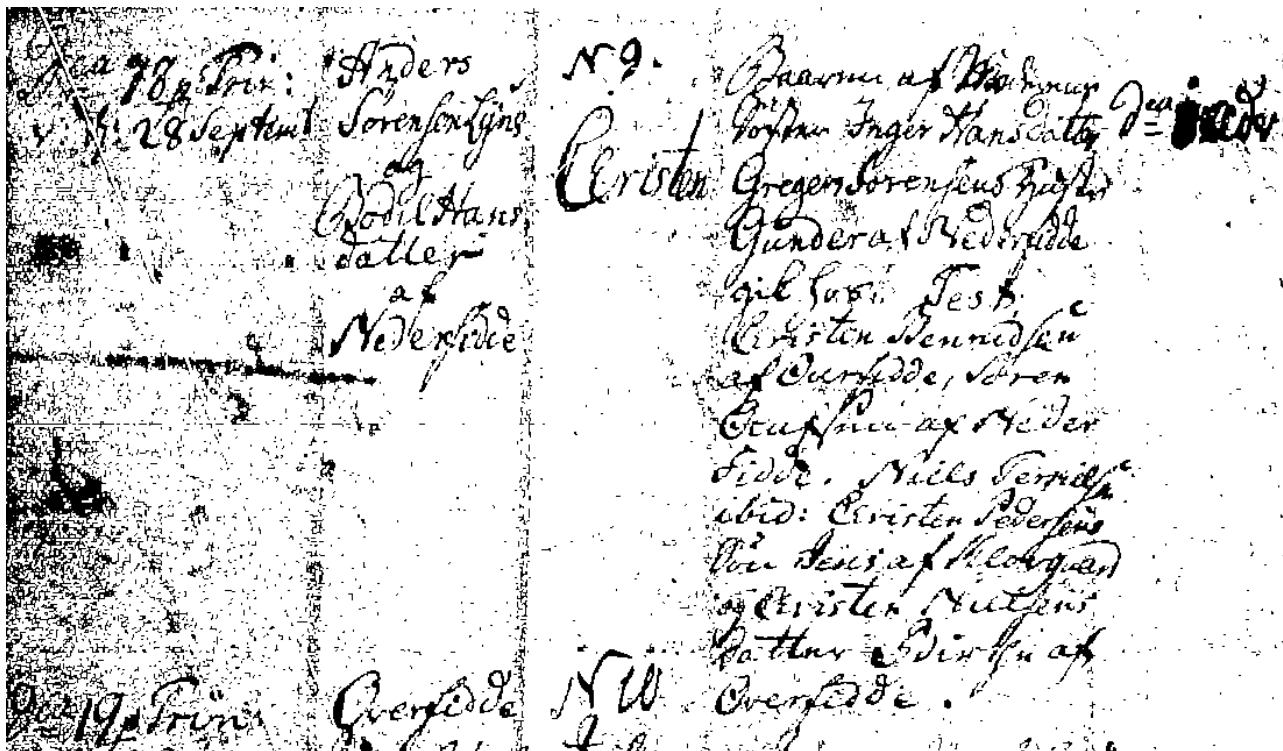 Dca 18 p Trin:
d: 28 Septemb
Anders
Sørensen Lyns
og
Bodil Hans
datter
af
Nedersidde
N 9.
Christen
Baaren af
Søster Inger Hansdatter
Gregers Sørensens Hustr
Gunder af Nedersidde
gik hos: Test.
Christen Bennidsen
af Oversidde, Søren
af Neder
sidde. Niels
ibid: Christen Pedersens
Søn Jens af Klovgaard
og Christen Nielsens
datter af
Oversidde.
Dca
Dca 19 p Trin:
Oversidde
N 10